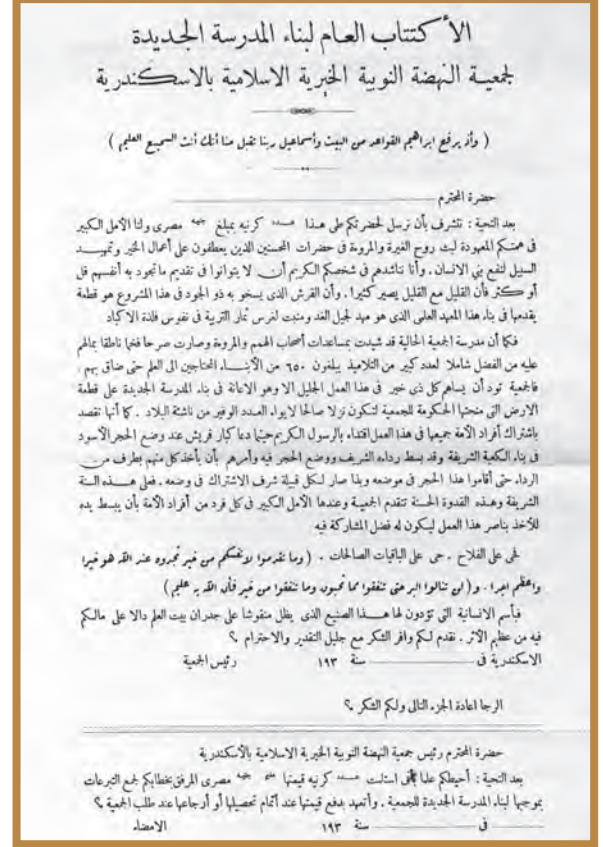 الأكتتاب العام لبناء المدرسة الجديدة
لجمعية النهضة النوبية الخيرية الاسلامية بالاسكندرية
( وأذ يرفع ابراهيم القواعد من البيت وأسماعيل ربنا تقبل منا أنك أنت السميع العليم )
حضرة المحترم
بعد التحية : نتشرف بأن نرسل لحضرتكم طى هذا كرنيه بمبلغ جنيه مصرى ولنا الأمل الكبير
فى همتكم المعهودة لبث روح الغيرة والمروءة فى حضرات المحسنين الذين يعطفون على أعمال الخير وتمهيد
السبيل لنفع بنى الانسان . وأنا نناشدهم فى شخصكم الكريم أن لا يتوانوا فى تقديم ماتجود به أنفسهم قل
أو كثر فأن القليل مع القليل يصير كثيرا . وأن القرش الذى يسخو به ذو الجود فى هذا المشروع هو قطعة
يقدمها فى بناء هذا المعهد العلمى الذى هو مهد لجيل الغد ومنبت لغرس ثمار التربية فى نفوس فلذة الاكباد
فكما أن مدرسة الجمعية الحالية قد شيدت بمساعدات أصحاب الهمم والمروءة وصارت صرحا فخما ناطقا بمالهم
عليه من الفضل شاملا لعدد كبير من التلاميذ يبلغون ٦٥٠ من الأبناء المحتاجين الى العلم حتى ضاق بهم ،
فالجمعية تود أن يساهم كل ذى خير فى هذا العمل الجليل الا وهو الاعانة فى بناء المدرسة الجديدة على قطعة
الارض التى منحتها الحكومة للجمعية لتكون نزلا صالحا لايواء العدد الوفير من ناشئة البلاد . كما أنها تقصد
باشتراك أفراد الأمة جميعها فى هذا العمل اقتداء بالرسول الكريم حينما دعا كبار قريش عند وضع الحجر الأسود
فى بناء الكعبة الشريفة وقد بسط رداءه الشريف ووضع الحجر فيه وأمرهم بأن يأخذ كل منهم بطرف من
الرداء حتى أقاموا هذا الحجر فى موضعه وبذا صار لكل قبيلة شرف الاشتراك فى وضعه . فعلى هذه السنة
الشريفة وهذه القدوة الحسنة تتقدم الجمعية وعندها الأمل الكبير فى كل فرد من أفراد الأمة بأن يبسط يده
للأخذ بناصر هذا العمل ليكون له فضل المشاركة فيه
فحى على الفلاح . حى على الباقيات الصالحات . ( وما تقدموا لانفسكم من خير تجدوه عند الله هو خيرا
واعظم اجرا . و ( لن تنالوا البر حتى تنفقوا مما تحبون وما تنفقوا من خير فأن الله به عليم )
فبأسم الانسانية التى تؤدون لها هذا الصنيع الذى يظل منقوشا على جدران بيت العلم دالا على مالكم
فيه من عظيم الأثر . نقدم لكم وافر الشكر مع جليل التقدير والاحترام ؟
الاسكندرية فى سنة ١٩٣ رئيس الجمعية
الرجا اعادة الجزء التالى ولكم الشكر ؟
حضرة المحترم رئيس جمعية النهضة النوبية الخيرية الاسلامية بالأسكندرية
بعد التحية : أحيطكم علما استلمت كرنيه قيمتها جنيه مصرى المرفق بخطابكم لجمع التبرعات
بموجبها لبناء المدرسة الجديدة للجمعية . وأتعهد بدفع قيمتها عند أتمام تحصيلها أو أرجاعها عند طلب الجمعية ؟
فى سنة ١٩٣ الامضاء